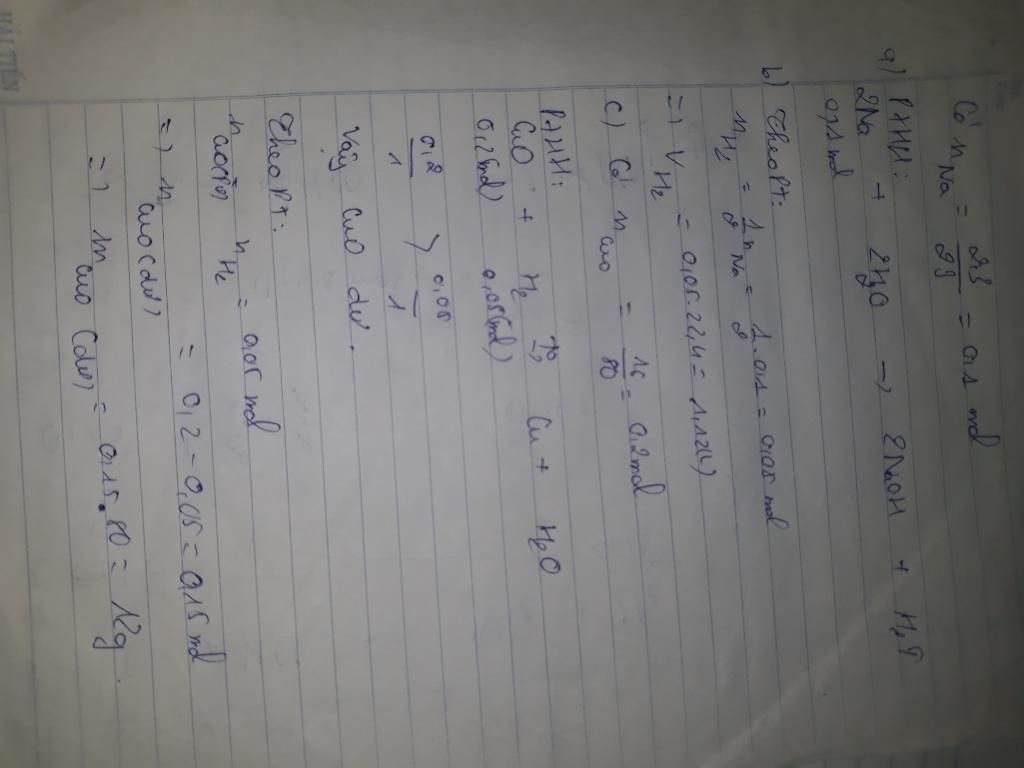 Có n Na = 2,3/23 = 0,1 mol
a) PTHH:
2Na + 2H2O → 2NaOH + H2↑
0,1 mol
b) Theo Pt:
n H2 = 1/2 n Na = 1/2 . 0,1 = 0,05 mol
=) V H2 = 0,05.22,4 = 1,12(l)
c) Có n CuO = 16/80 = 0,2 mol
PTHH:
CuO + H2 t°→ Cu + H2O
0,2(mol) 0,05(mol)
0,2/1 > 0,05/1
Vậy CuO dư.
Theo Pt:
n CuO(PƯ) n H2 = 0,05 mol
=) n CuO(dư) = 0,2 - 0,05 = 0,15 mol
=) m CuO (dư) = 0,15.80 = 12g
HẢI TIẾN